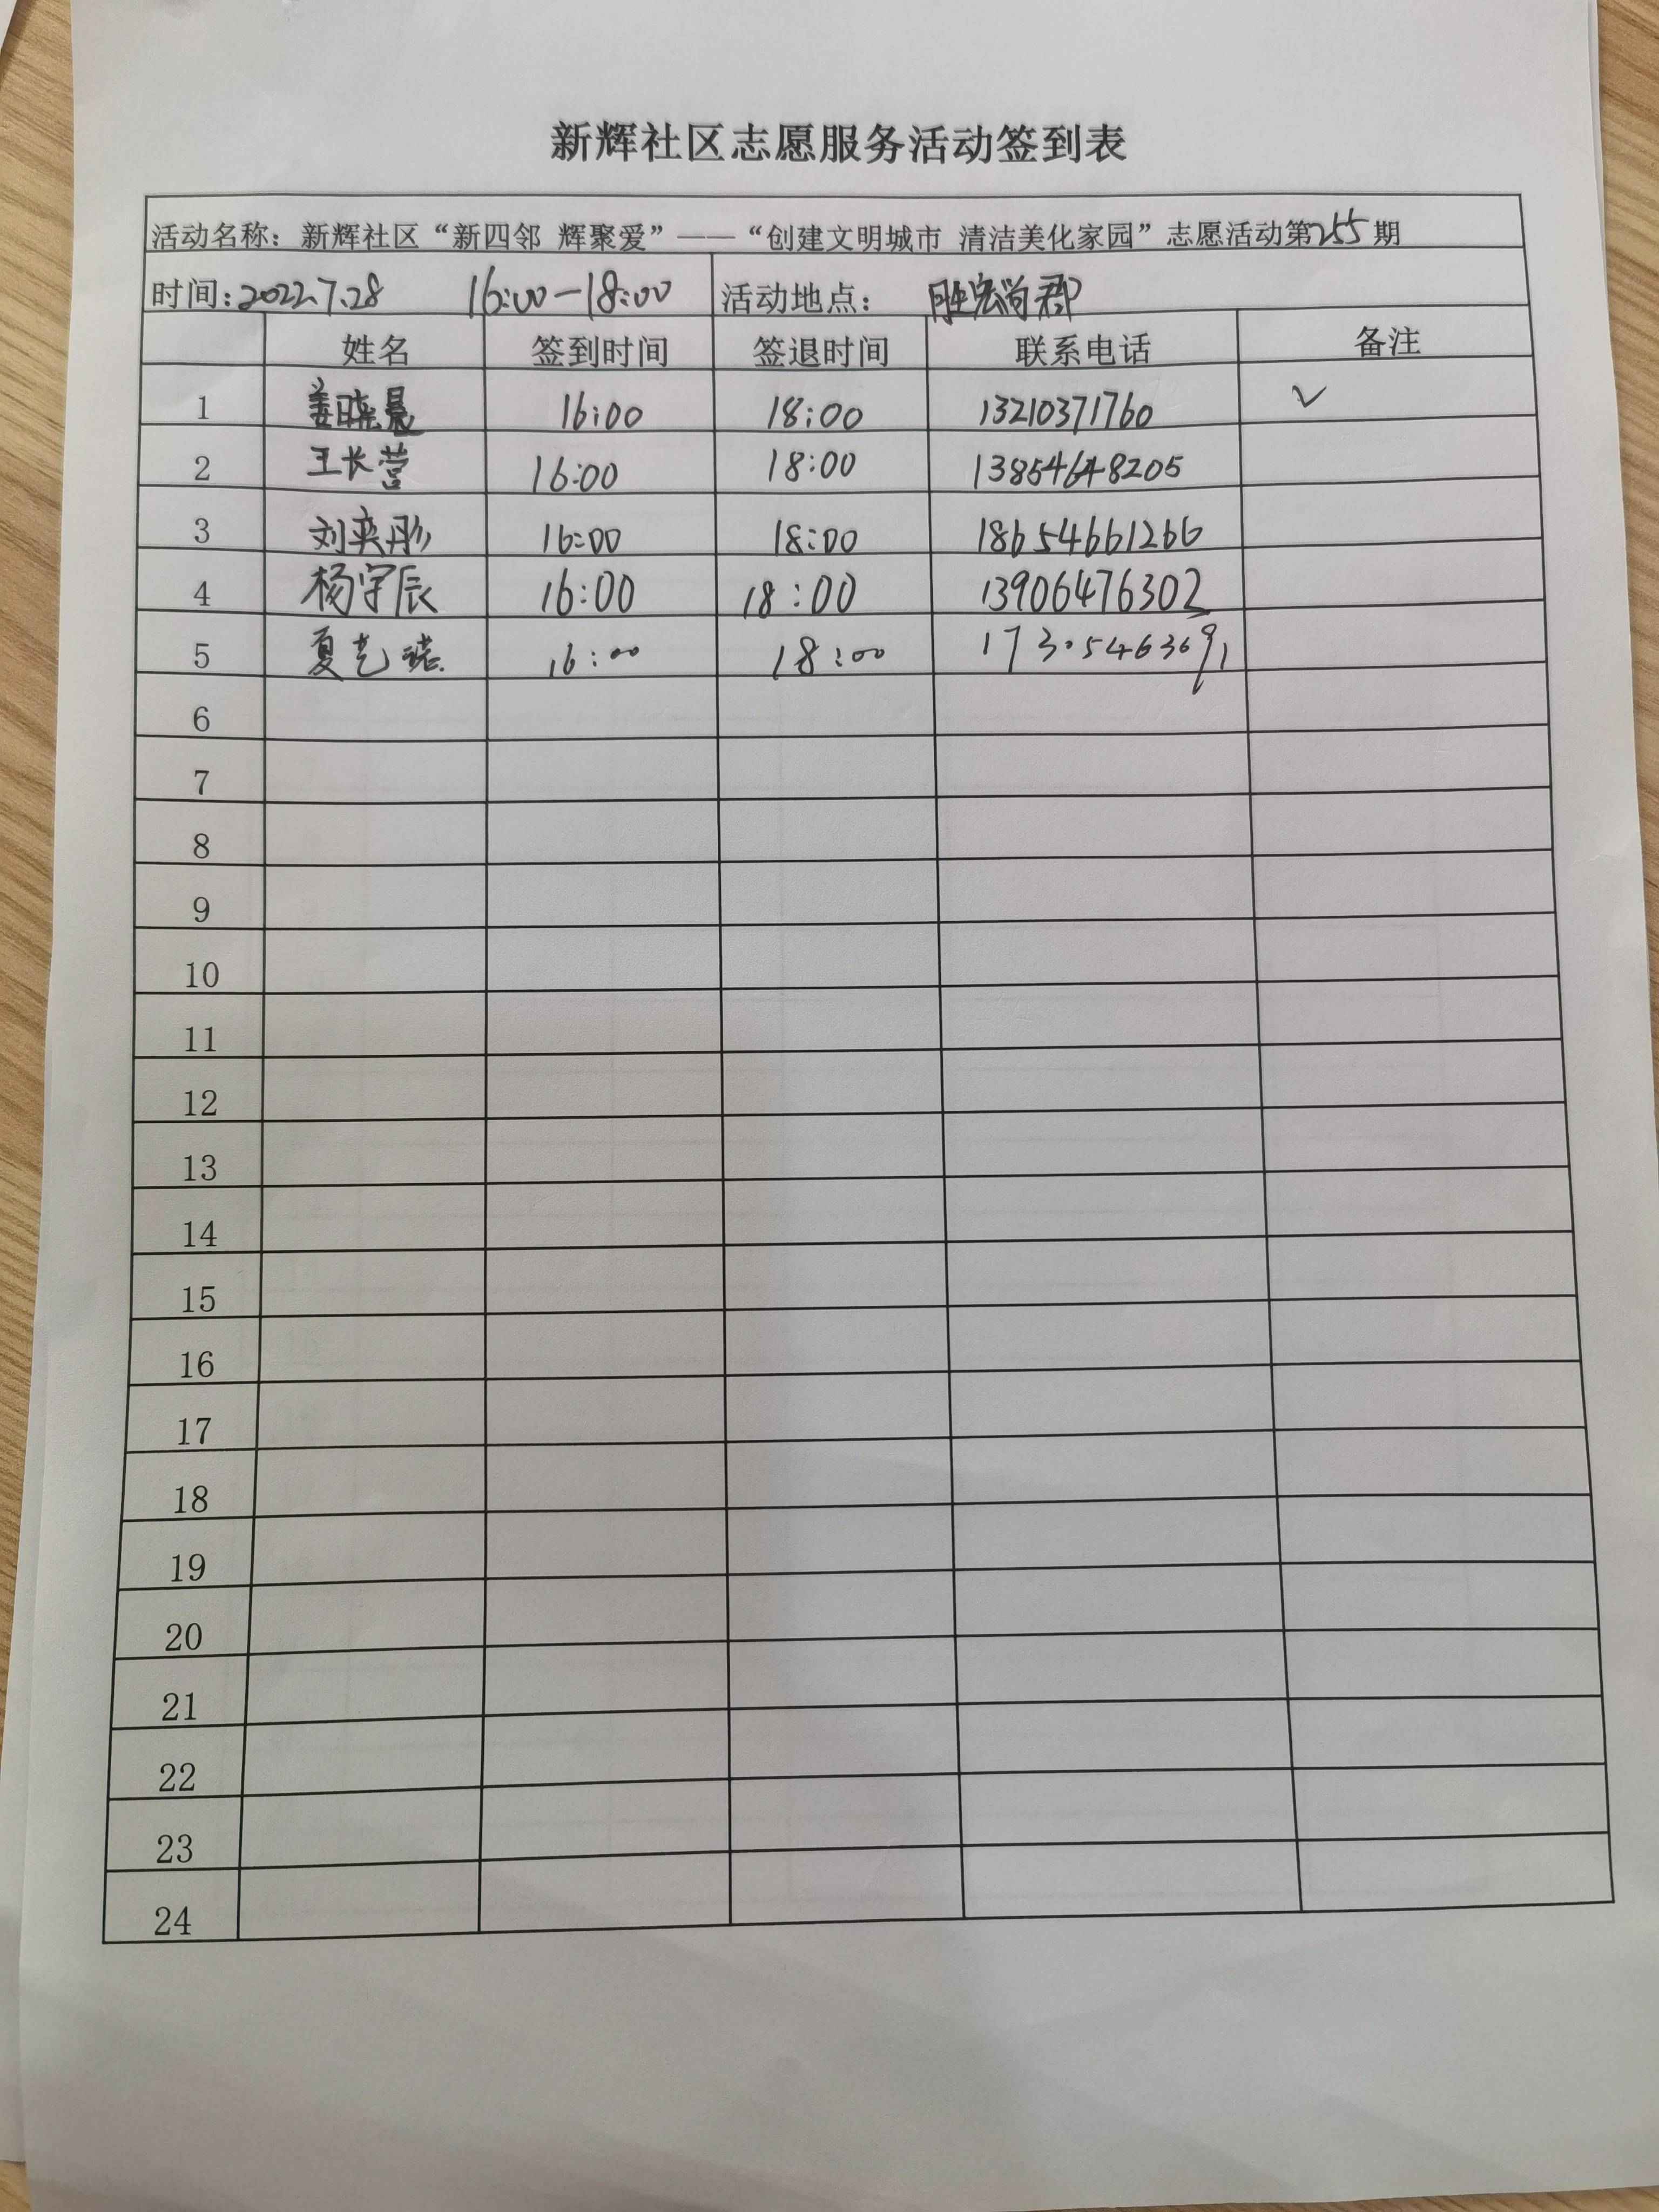 新辉社区志愿服务活动签到表
活动名称：新辉社区“新四邻 辉聚爱”——“创建文明城市 清洁美化家园”志愿活动第255期
时间：2022.7.28 16:00-18:00 活动地点：胜宏尚郡
姓名 签到时间 签退时间 联系电话 备注
1 姜晓晨 16:00 18:00 13210371760 ✓
2 王长营 16:00 18:00 13854648205
3 刘奕彤 16:00 18:00 18654661266
4 杨宇辰 16:00 18:00 13906476302
5 夏艺 16:00 18:00
6
7
8
9
10
11
12
13
14
15
16
17
18
19
20
21
22
23
24